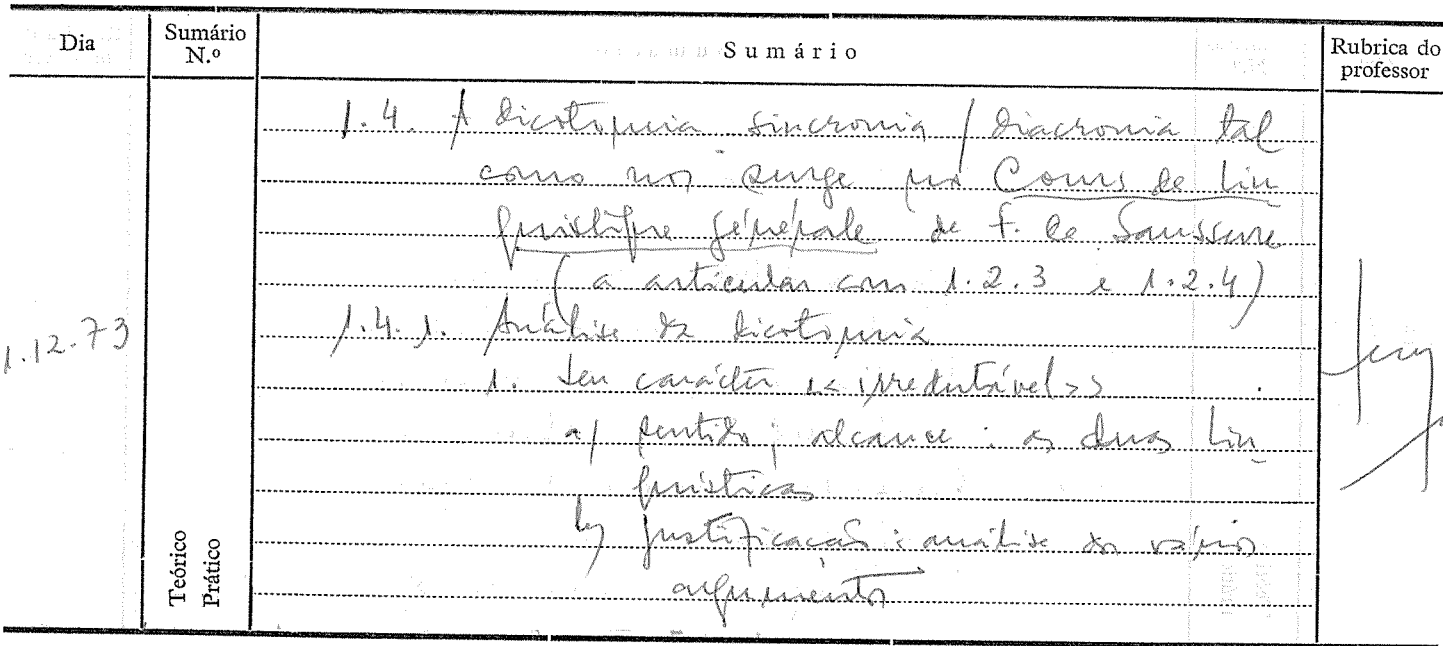 Dia
Sumário N.º
Sumário
Rubrica do professor
1.4. A dicotomia sincronia / diacronia tal
como nos surge no Cours de Lin
guistique générale de F. de Saussure
(a articular com 1.2.3 e 1.2.4)
1.4.1. Análise da dicotomia
1. Seu carácter << irredutável >>
a) sentido; alcance: as duas Lin_
guísticas
b) justificação: análise dos vários
argumentos
1.12.73
Teórico
Prático